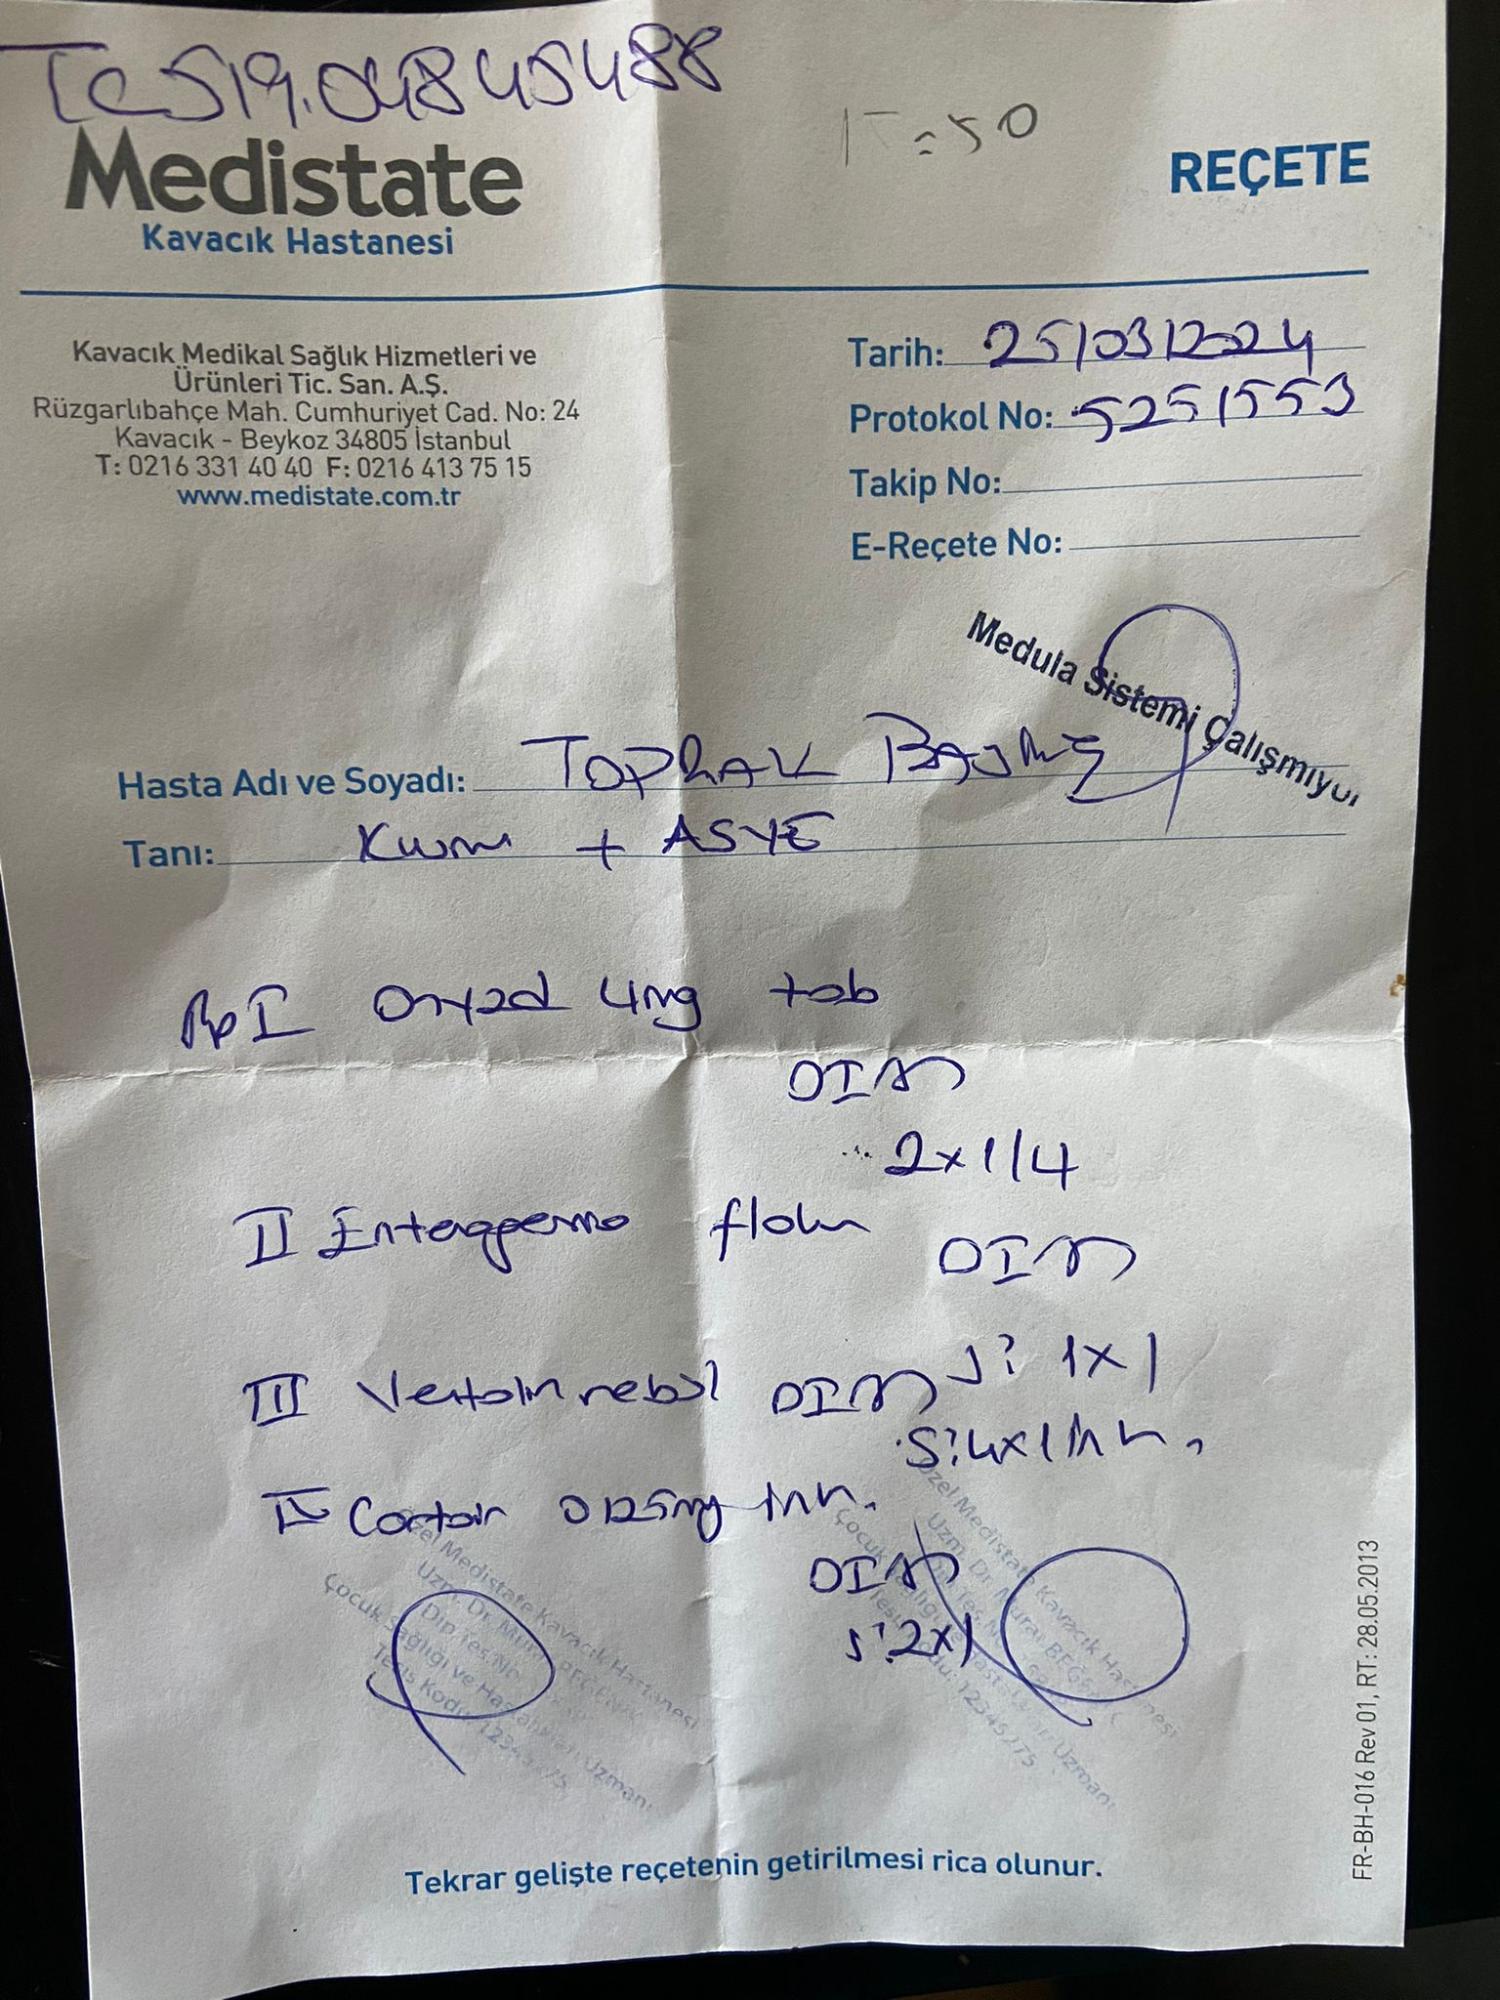 TC 519.04845488
15=50
Medistate
Kavacık Hastanesi
REÇETE
Kavacık Medikal Sağlık Hizmetleri ve
Ürünleri Tic. San. A.Ş.
Rüzgarlıbahçe Mah. Cumhuriyet Cad. No: 24
Kavacık - Beykoz 34805 İstanbul
T: 0216 331 40 40 F: 0216 413 75 15
www.medistate.com.tr
Tarih: 25/03/2024
Protokol No: 5251553
Takip No:
E-Reçete No:
Medula Sistemi Çalışmıyor
Hasta Adı ve Soyadı: TOPRAK
Tanı: + ASYE
Rp I 4mg tab
DI
2x1/4
II Enterogermo flokn
DI
S: 1x1
III Ventolin nebul DI
S: 4x1 inh.
IV Cortair 0125mg inh.
DI
S: 2x1
Özel Medistate Kavacık Hastanesi
Uzm. Dr. Murat
Dip Tes No
Çocuk Sağlığı ve Hastalıkları Uzmanı
Tesis Kodu: 12345775
Özel Medistate Kavacık Hastanesi
Uzm. Dr. Murat
Dip Tes No
Çocuk Sağlığı ve Hastalıkları Uzmanı
Tesis Kodu: 12345775
Tekrar gelişte reçetenin getirilmesi rica olunur.
FR-BH-016 Rev 01, RT: 28.05.2013